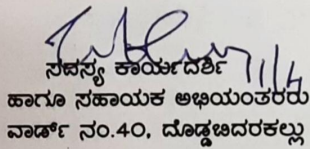 ಸದಸ್ಯ ಕಾರ್ಯದರ್ಶಿ 11/4
ಹಾಗೂ ಸಹಾಯಕ ಅಭಿಯಂತರರು
ವಾರ್ಡ್ ನಂ.40, ದೊಡ್ಡಬಿದರಕಲ್ಲು